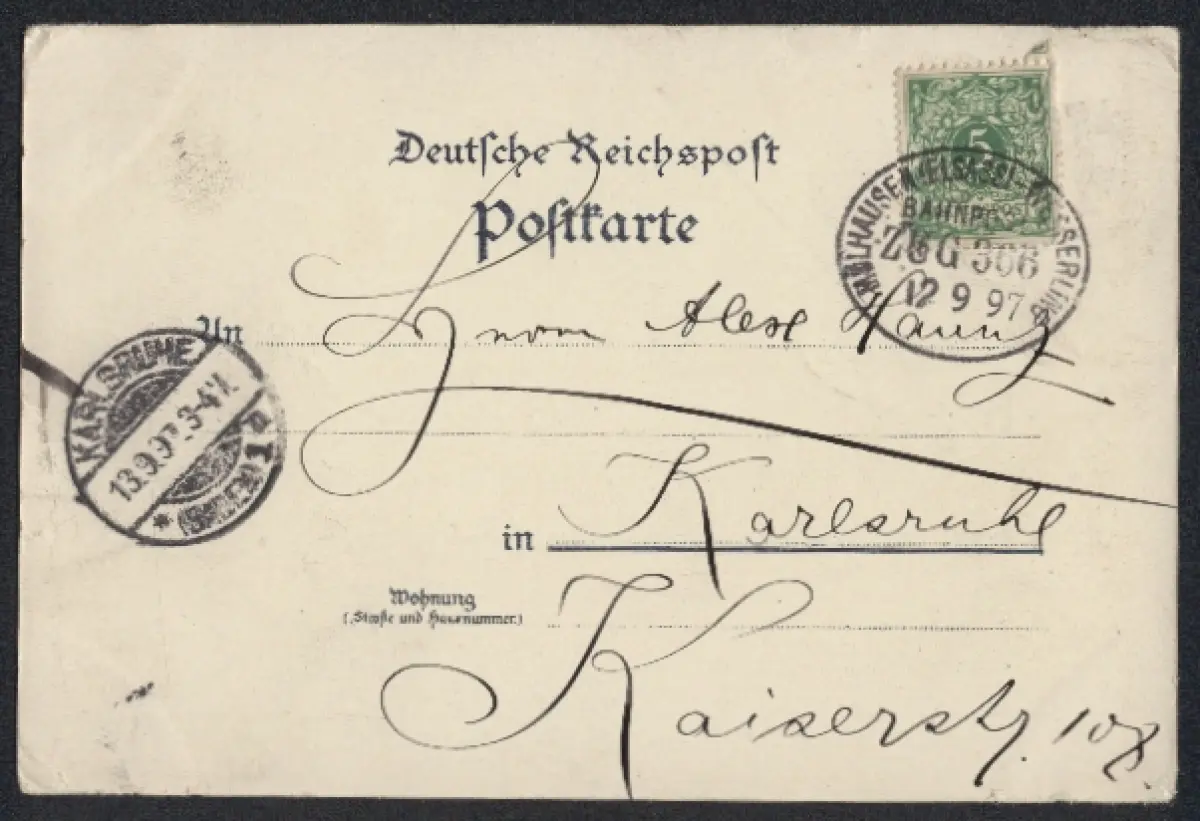 Deutsche Reichspost
Postkarte
5
MÜLHAUSEN (ELSASS)-WESSERLING
BAHNPOST
ZUG 366
12 9 97
An Herrn Alex
KARLSRUHE
13.9.97. 3-4 N.
in Karlsruhe
Wohnung
(Straße und Hausnummer.)
Kaiserstr.